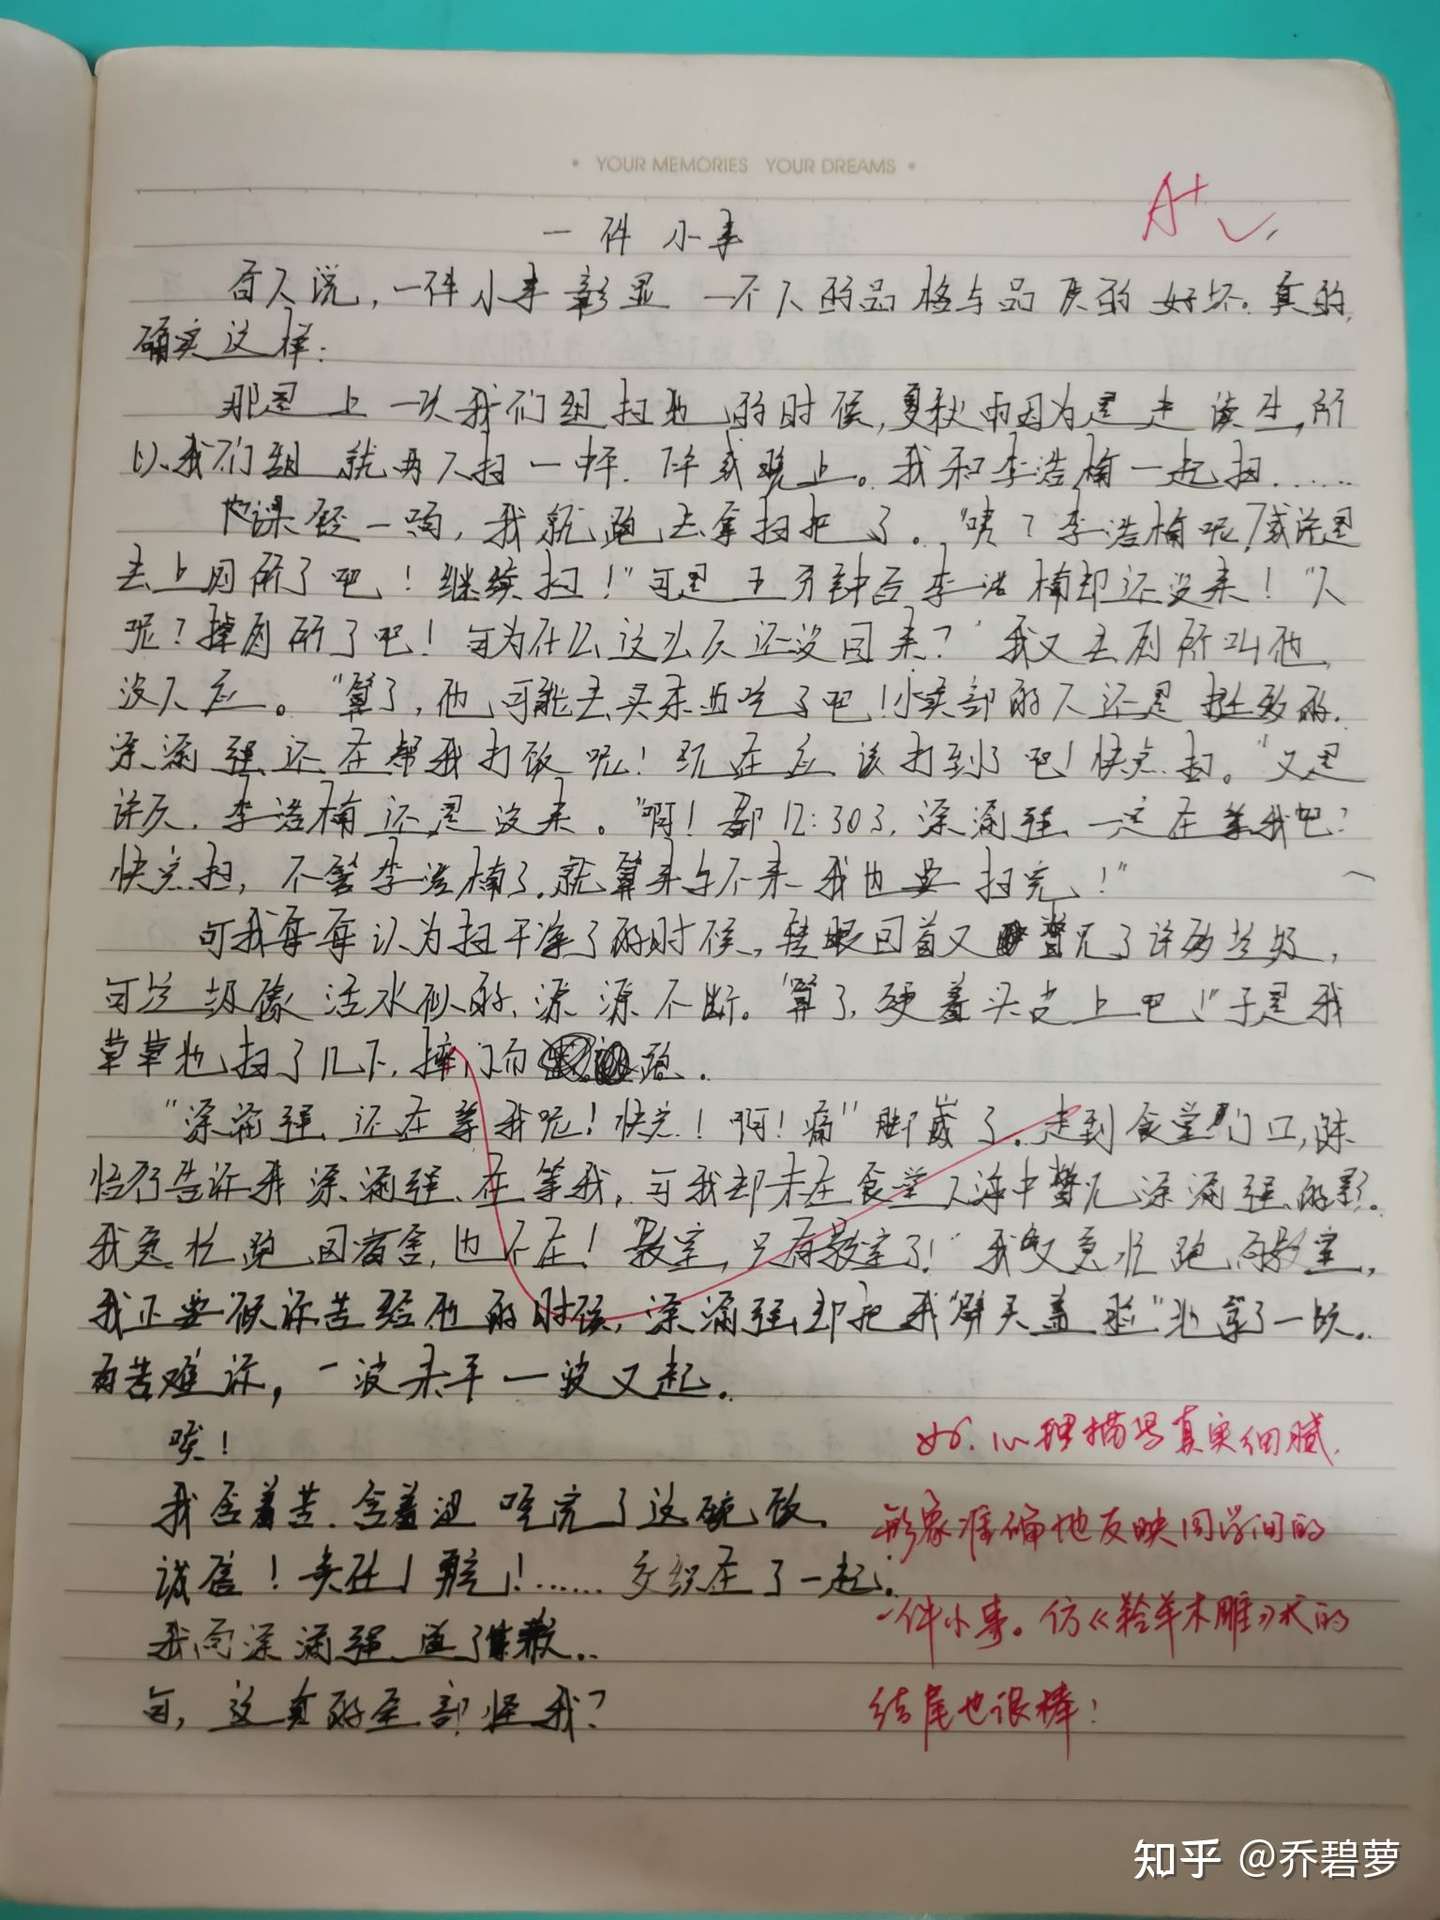 YOUR MEMORIES YOUR DREAMS
A+
一件小事
有人说，一件小事彰显一个人的品格与品质的好坏。真的，
确实这样：
那是上一次我们组扫地的时候，夏秋雨因为是走读生，所
以我们组就两人扫一中午，下午或晚上。我和李浩楠一起扫……
下课铃一响，我就跑去拿扫把了。"咦？李浩楠呢？或许是
去上厕所了吧！继续扫！"可是五分钟后李浩楠却还没来！"人
呢？掉厕所了吧！可为什么这么久还没回来？"我又去厕所叫他，
没人应。"算了，他可能去买东西吃了吧！小卖部的人还是挺多的，
涂涵强还在帮我打饭呢！现在应该打到了吧！快点扫。"又是
许久，李浩楠还是没来。"啊！都12:30了，涂涵强一定在等我吧？
快点扫，不管李浩楠了，就算来与不来我也要扫完！"
可我每每认为扫干净了的时候，转眼回首又瞥见了许多垃圾，
可垃圾像活水似的，源源不断。"算了，硬着头皮上吧！"于是我
草草地扫了几下，摔门而跑。
"涂涵强还在等我呢！快点！啊！痛"脚崴了。走到食堂门口，
告诉我涂涵强在等我，可我却未在食堂人海中瞥见涂涵强的影。
我急忙跑回宿舍，也不在！"教室，只有教室了！"我又急忙跑向教室，
我正要倾诉苦给他的时候，涂涵强却把我"劈头盖脸"地骂了一顿。
有苦难诉，一波未平一波又起。
唉！
我含着苦，含着泪吃完了这碗饭。
诚信！责任！勇气！……交织在了一起。
我向涂涵强道了歉。
可，这真的全部怪我？
好，心理描写真实细腻，
形象准确地反映同学间的
一件小事。仿《羚羊木雕》式的
结尾也很棒！
知乎 @乔碧萝